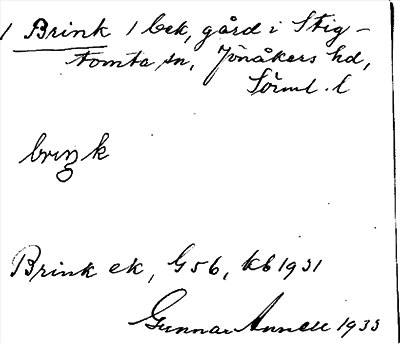 / Brink / bek, gård i Stig-
tomta sn, Jönåkers hd,
Sörml. l
briŋk
Brink ek, G 56, kb 1931
Gunnar Annell 1933